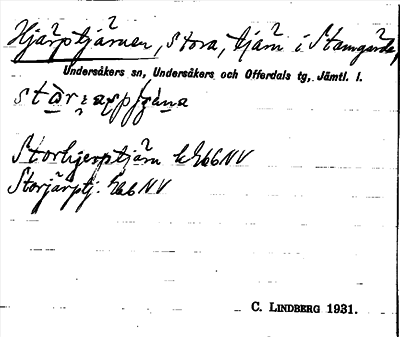 Hjärptjärnen, Stora, tjärn i Stamgärde,
Undersåkers sn, Undersåkers och Offerdals tg, Jämtl. l.
Storhjerptjärn k 266 NV
Storjärptj. 266 NV
C. LINDBERG 1931.